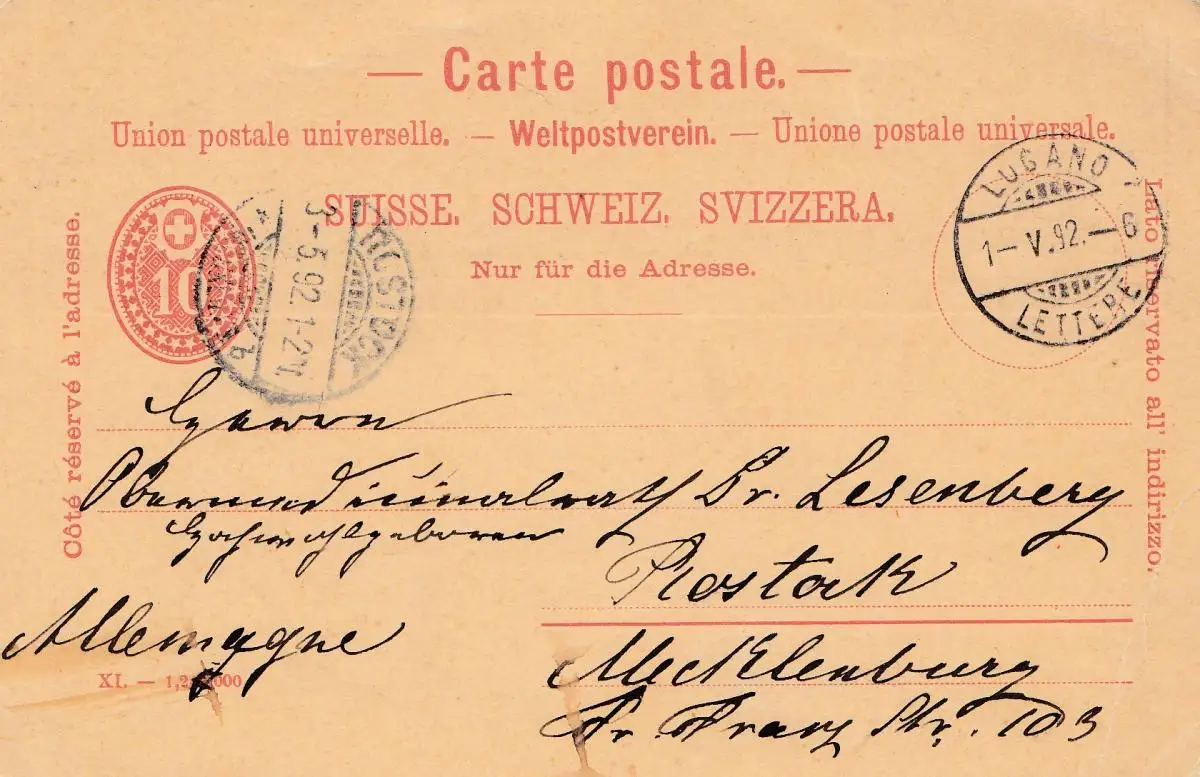 — Carte postale. —
Union postale universelle. — Weltpostverein. — Unione postale universale.
SUISSE. SCHWEIZ. SVIZZERA.
Nur für die Adresse.
Côté réservé à l'adresse.
Lato riservato all' indirizzo.
10
ROSTOCK
3-5.92.1-2N
LUGANO
1-V.92.-6
LETTERE
Herrn
Obermedicinalrath Dr. Lesenberg
Hochwohlgeboren
Rostock
Allemagne
Mecklenburg
Fr. Franz Str. 103
XI. —